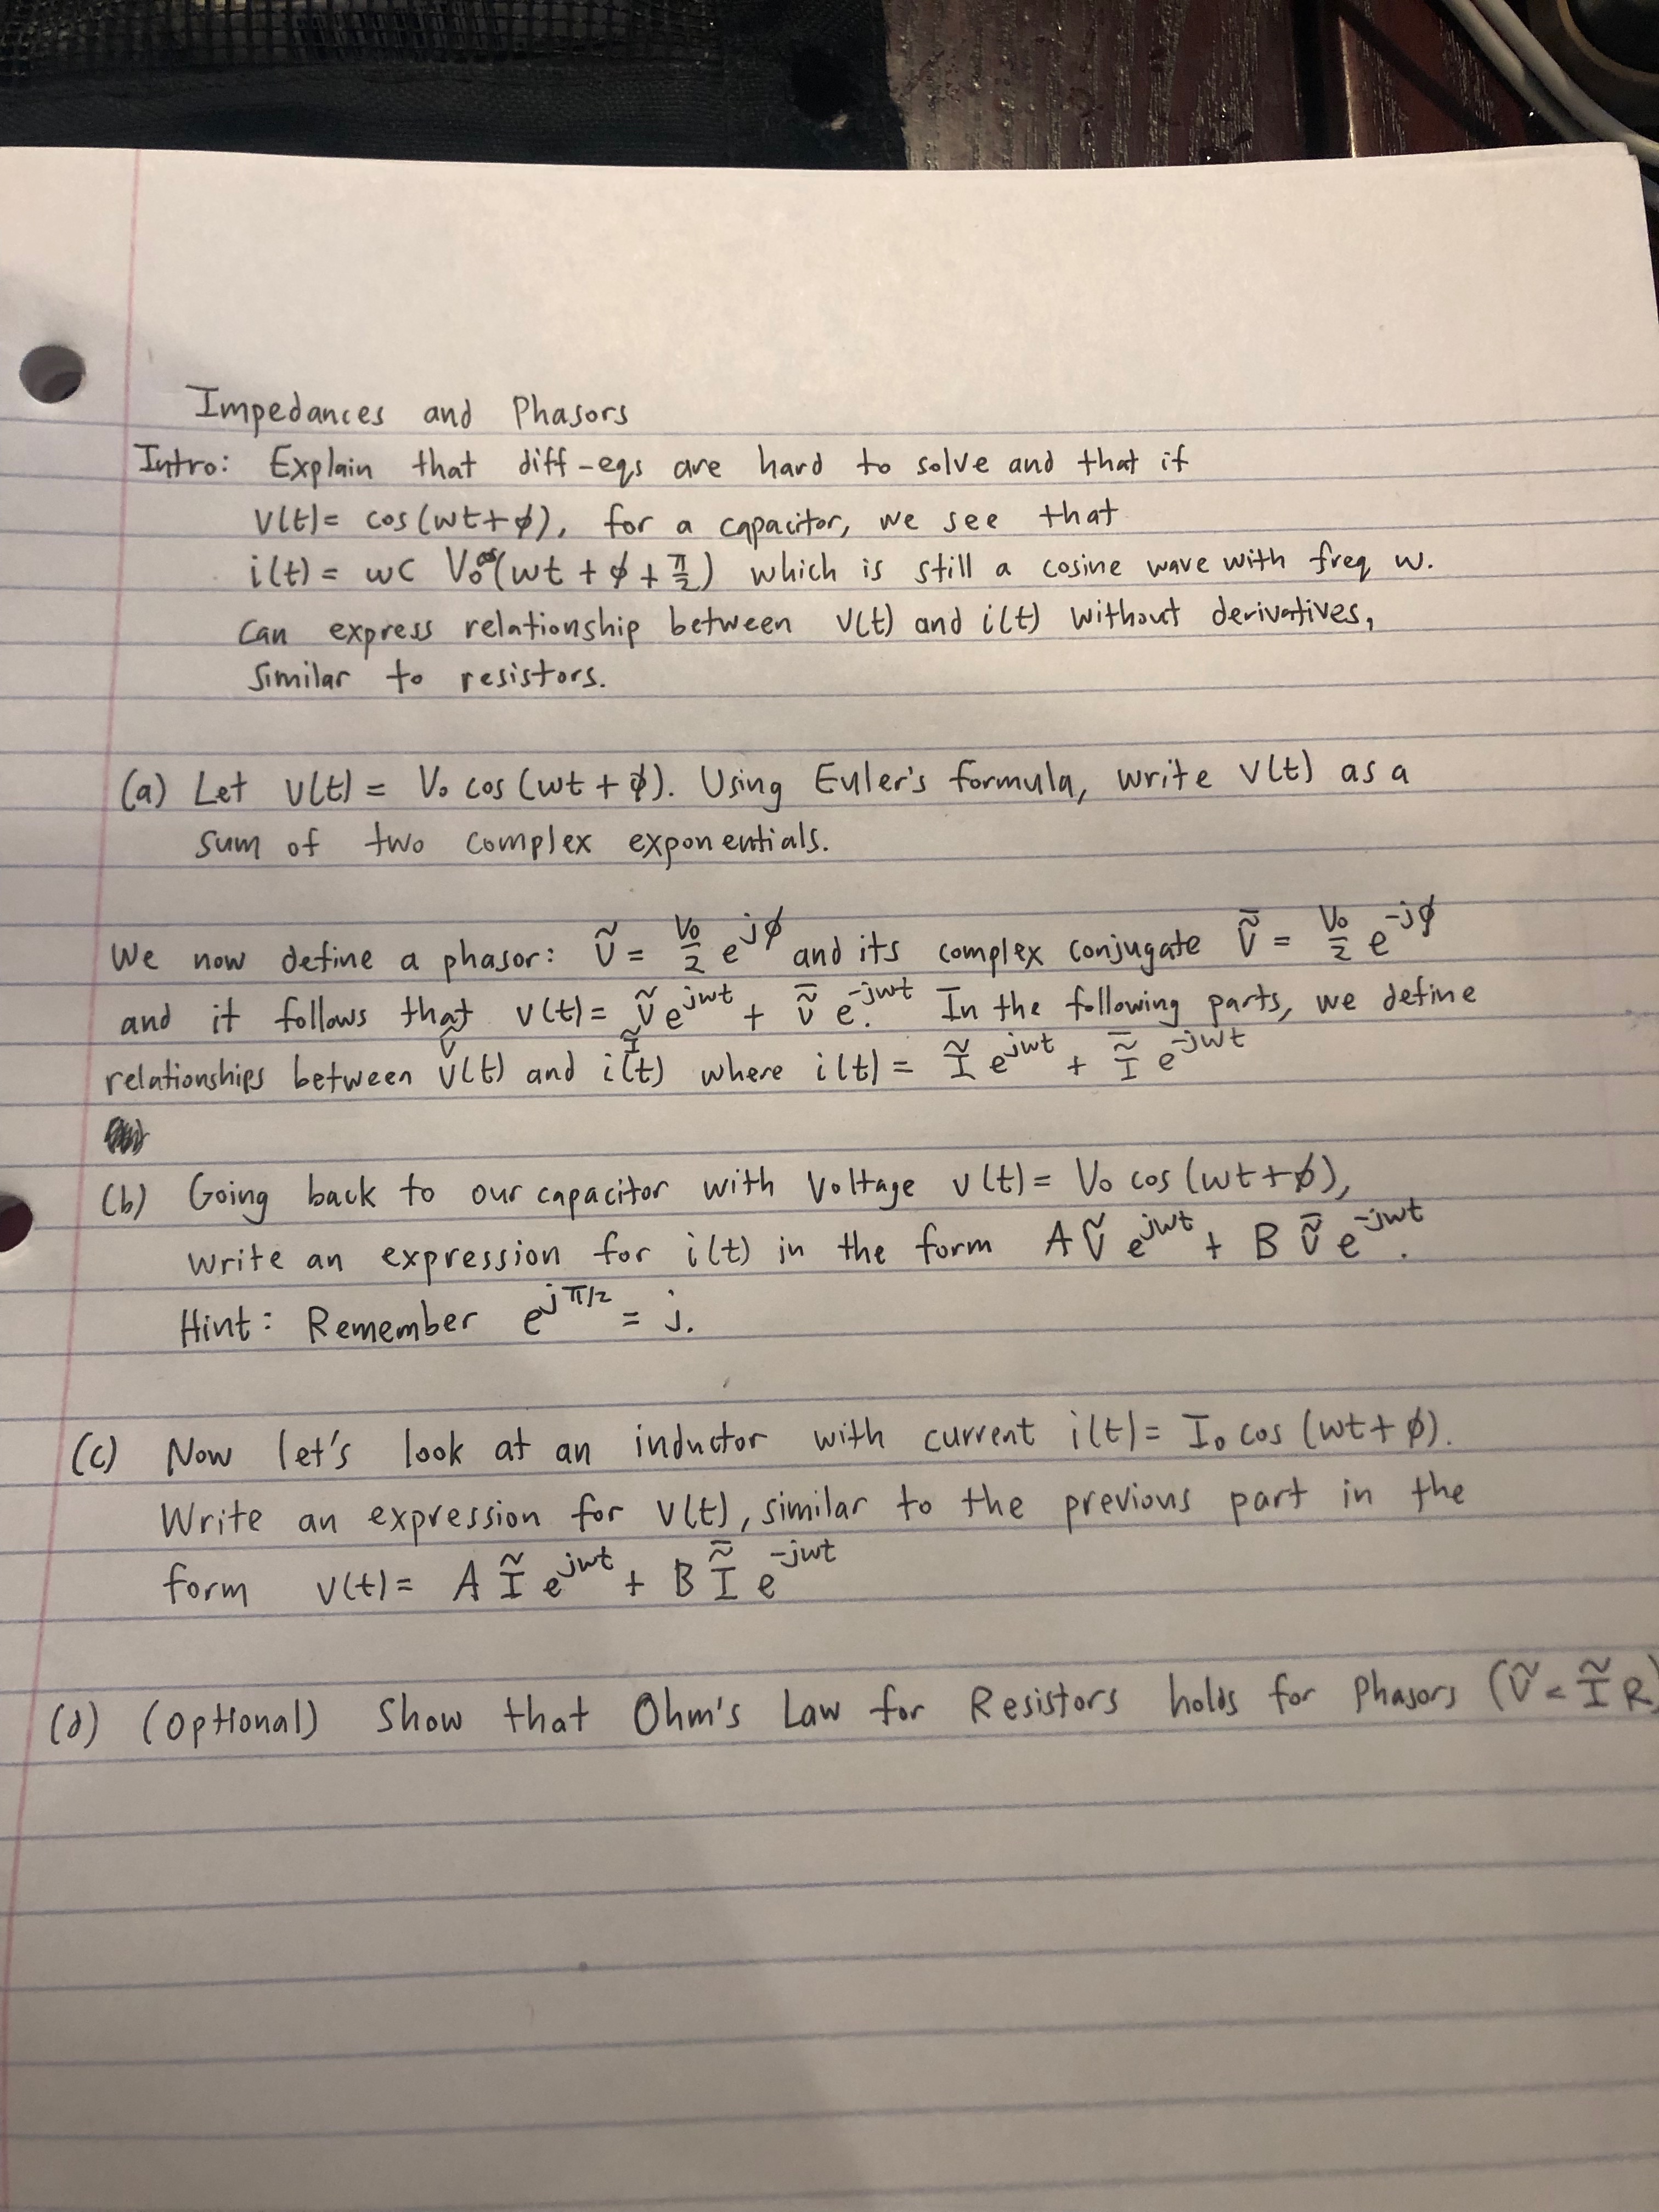 Impedances and Phasors
Intro: Explain that diff-eqs are hard to solve and that if
v(t) = cos(wt+ϕ), for a capacitor, we see that
i(t) = wC V₀ cos(wt + ϕ + π/2) which is still a cosine wave with freq w.
Can express relationship between v(t) and i(t) without derivatives,
similar to resistors.
(a) Let v(t) = V₀ cos(wt + ϕ). Using Euler's formula, write v(t) as a
sum of two complex exponentials.
We now define a phasor: Ṽ = V₀/2 e^{jϕ} and its complex conjugate \bar{Ṽ} = V₀/2 e^{-jϕ}
and it follows that v(t) = Ṽ e^{jwt} + \bar{Ṽ} e^{-jwt}. In the following parts, we define
relationships between Ṽ v(t) and Ĩ i(t) where i(t) = Ĩ e^{jwt} + \bar{Ĩ} e^{-jwt}
(b) Going back to our capacitor with Voltage v(t) = V₀ cos(wt+ϕ),
write an expression for i(t) in the form A Ṽ e^{jwt} + B \bar{Ṽ} e^{-jwt}.
Hint: Remember e^{jπ/2} = j.
(c) Now let's look at an inductor with current i(t) = I₀ cos (wt + ϕ).
Write an expression for v(t), similar to the previous part in the
form v(t) = A Ĩ e^{jwt} + B \bar{Ĩ} e^{-jwt}
(d) (Optional) Show that Ohm's Law for Resistors holds for Phasors (Ṽ = Ĩ R)